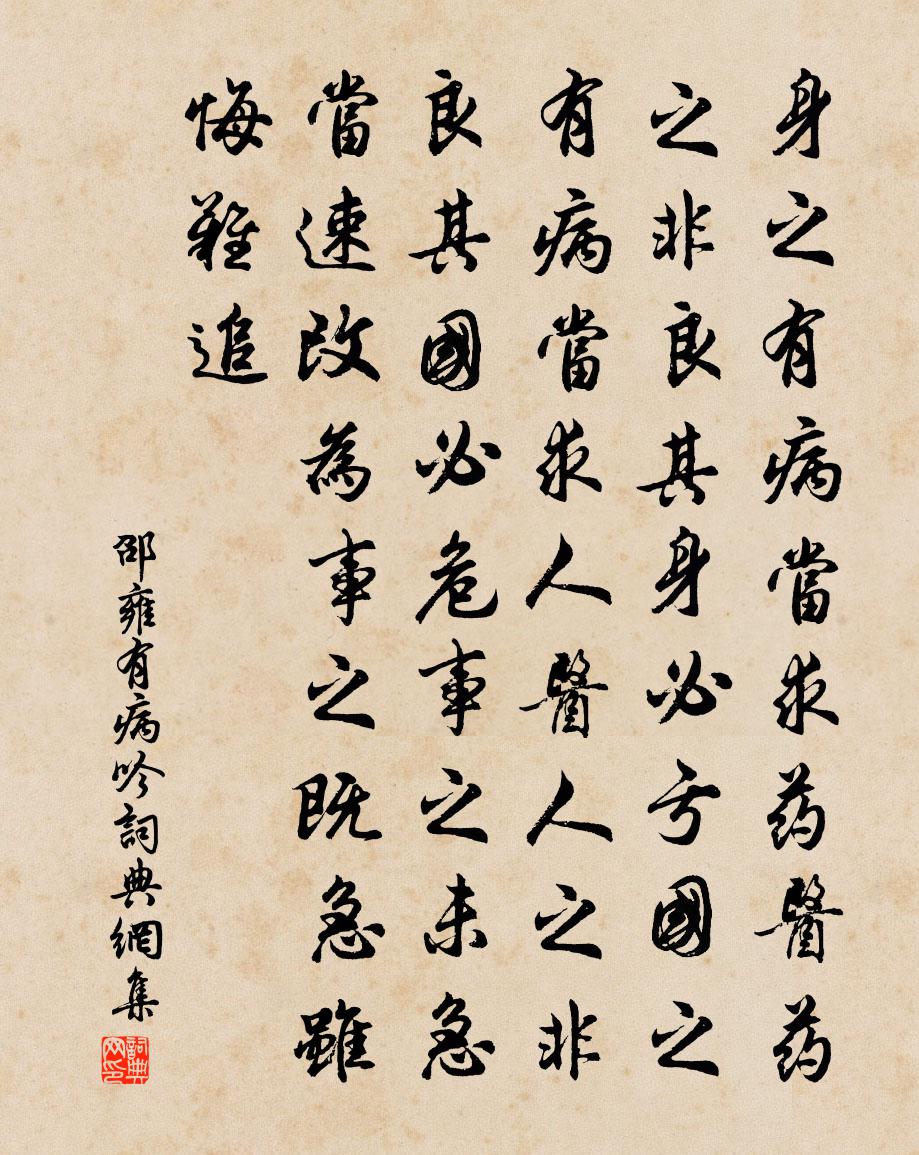 身之有病當求药醫药
之非良其身必亏國之
有病當求人醫人之非
良其國必危事之未急
當速改為事之既急雖
悔難追
邵雍有病吟詞典網集
詞典网印